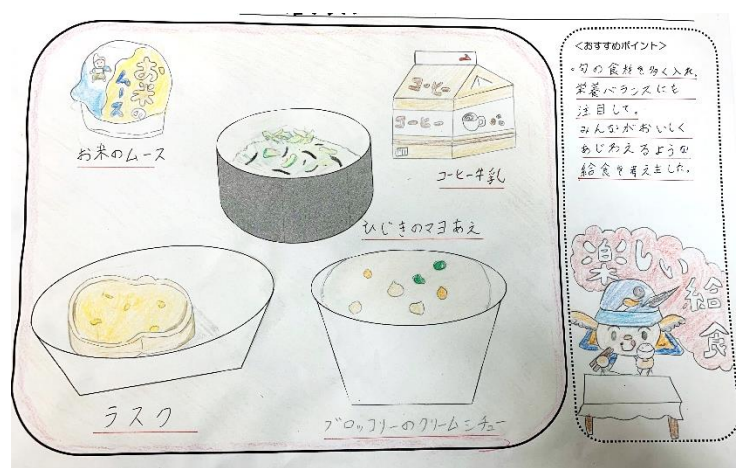 お米の
ムース
お米のムース
コーヒー
コーヒー
コーヒー牛乳
ひじきのマヨあえ
ラスク
ブロッコリーのクリームシチュー
<おすすめポイント>
・旬の食材を多く入れ、
栄養バランスにも
注目して、
みんながおいしく
あじわえるような
給食を考えました。
楽しい
給食